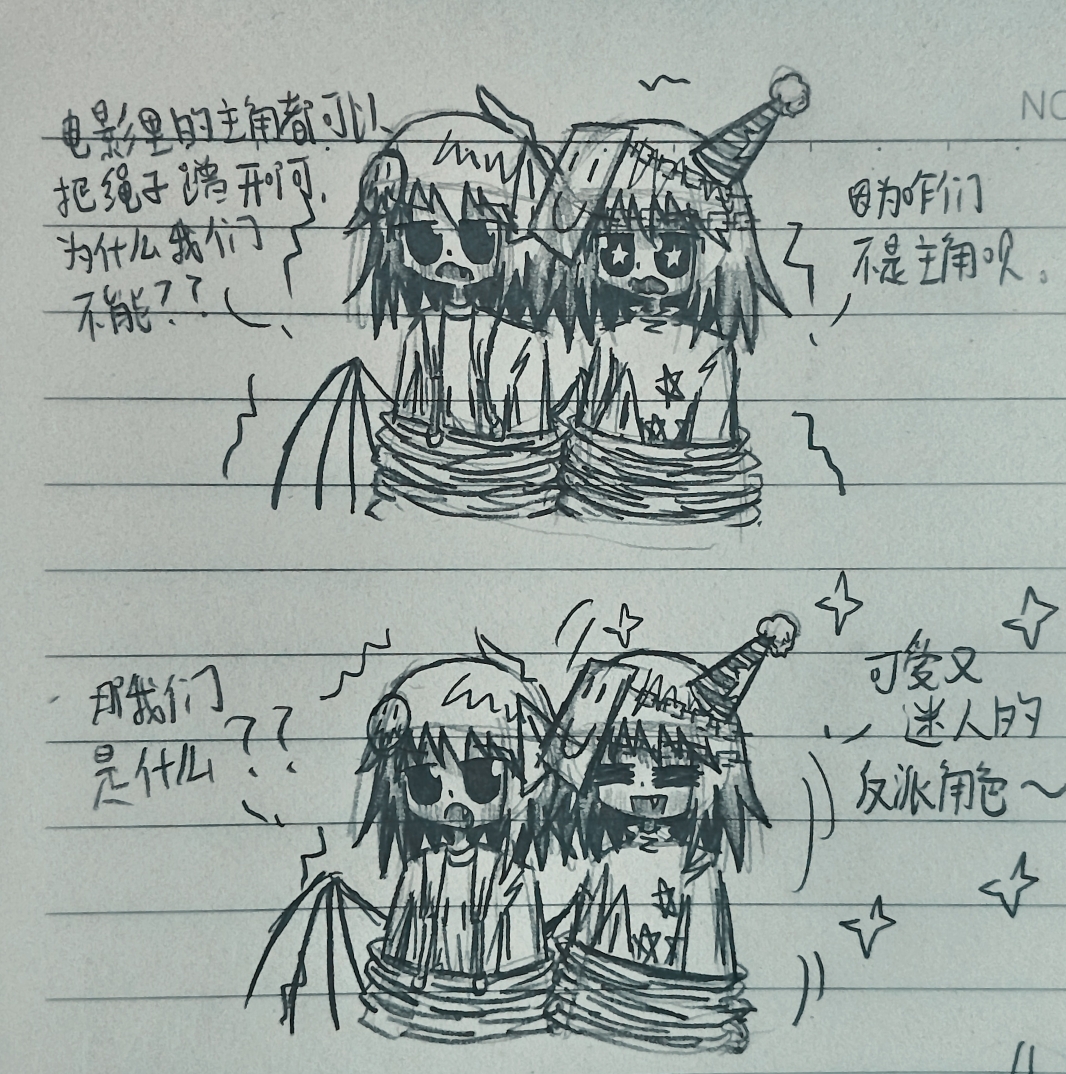 电影里的主角都可以
把绳子蹭开啊，
为什么我们
不能？？
因为咱们
不是主角呗。
那我们
是什么？？
可爱又
迷人的
反派角色～
NO